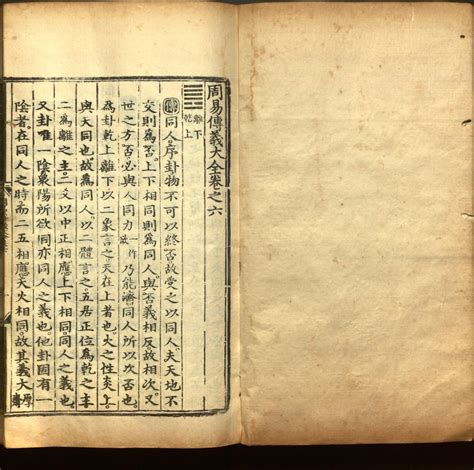 周易傳義大全卷之六
䷌ 離下 乾上
傳同人序卦物不可以終否故受之以同人夫天地不
交則爲否上下相同則爲同人與否義相反故相次又
世之方否必與人同力一作乃能濟同人所以次否也
爲卦乾上離下以二象言之天在上者也火之性炎上
與天同也故爲同人以二體言之五居正位爲乾之主
二爲離之主二爻以中正相應上下相同同人之義也
又卦唯一陰衆陽所欲同亦同人之義也他卦固有一
陰者在同人之時而二五相應天火相同故其義大厚齋